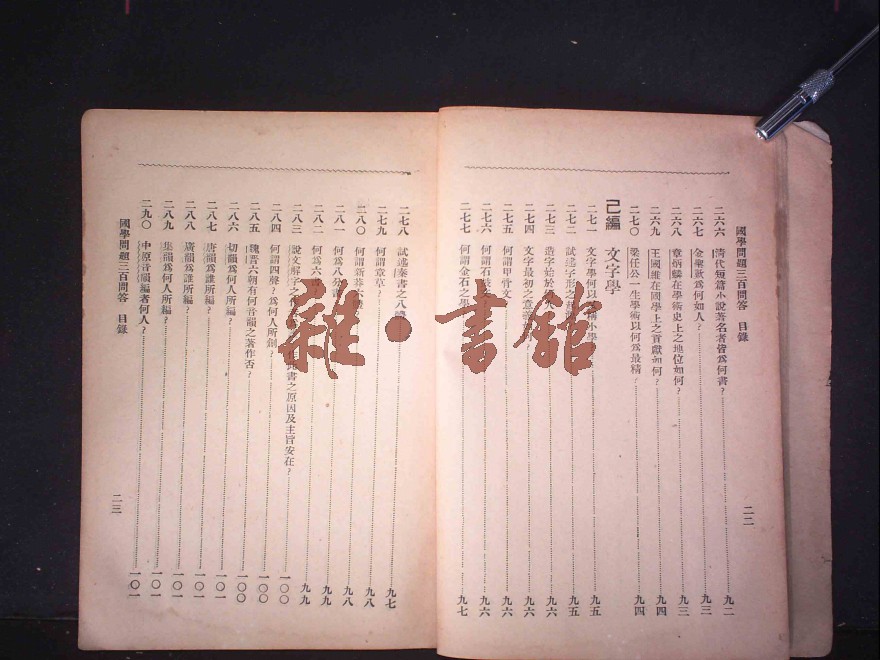 國學問題三百問答 目錄
二六六 清代短篇小說著名者皆爲何書？ 九二
二六七 金聖歎爲何如人？ 九三
二六八 章炳麟在學術史上之地位如何？ 九三
二六九 王國維在國學上之貢獻如何？ 九四
二七〇 梁任公一生學術以何爲最精？ 九四
己編 文字學
二七一 文字學何以 小學 九五
二七二 試述字形之 九五
二七三 造字始於 九六
二七四 文字最初之意 九六
二七五 何謂甲骨文 九六
二七六 何謂石 文 九六
二七七 何謂金石之學 九七
二二
二七八 試述秦書之八體 九七
二七九 何謂章草？ 九八
二八〇 何謂新莽六 九八
二八一 何爲八分書 九九
二八二 何爲六書 九九
二八三 說文解字之 書之原因及主旨安在？ 一〇〇
二八四 何謂四聲？爲何人所創？ 一〇〇
二八五 魏晉六朝有何音韻之著作否？ 一〇〇
二八六 切韻爲何人所編？ 一〇一
二八七 唐韻爲誰所編？ 一〇一
二八八 廣韻爲誰所編？ 一〇一
二八九 集韻爲何人所編？ 一〇一
二九〇 中原音韻編者何人？ 一〇一
國學問題三百問答 目錄
二三
雜·書館